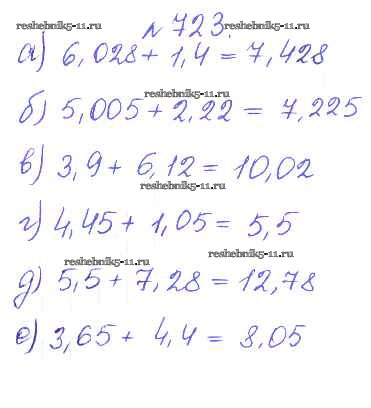 reshebnik5-11.ru № 723. reshebnik5-11.ru
а) 6,028 + 1,4 = 7,428
reshebnik5-11.ru
б) 5,005 + 2,22 = 7,225
в) 3,9 + 6,12 = 10,02
reshebnik5-11.ru
г) 4,45 + 1,05 = 5,5
reshebnik5-11.ru reshebnik5-11.ru
д) 5,5 + 7,28 = 12,78
е) 3,65 + 4,4 = 8,05